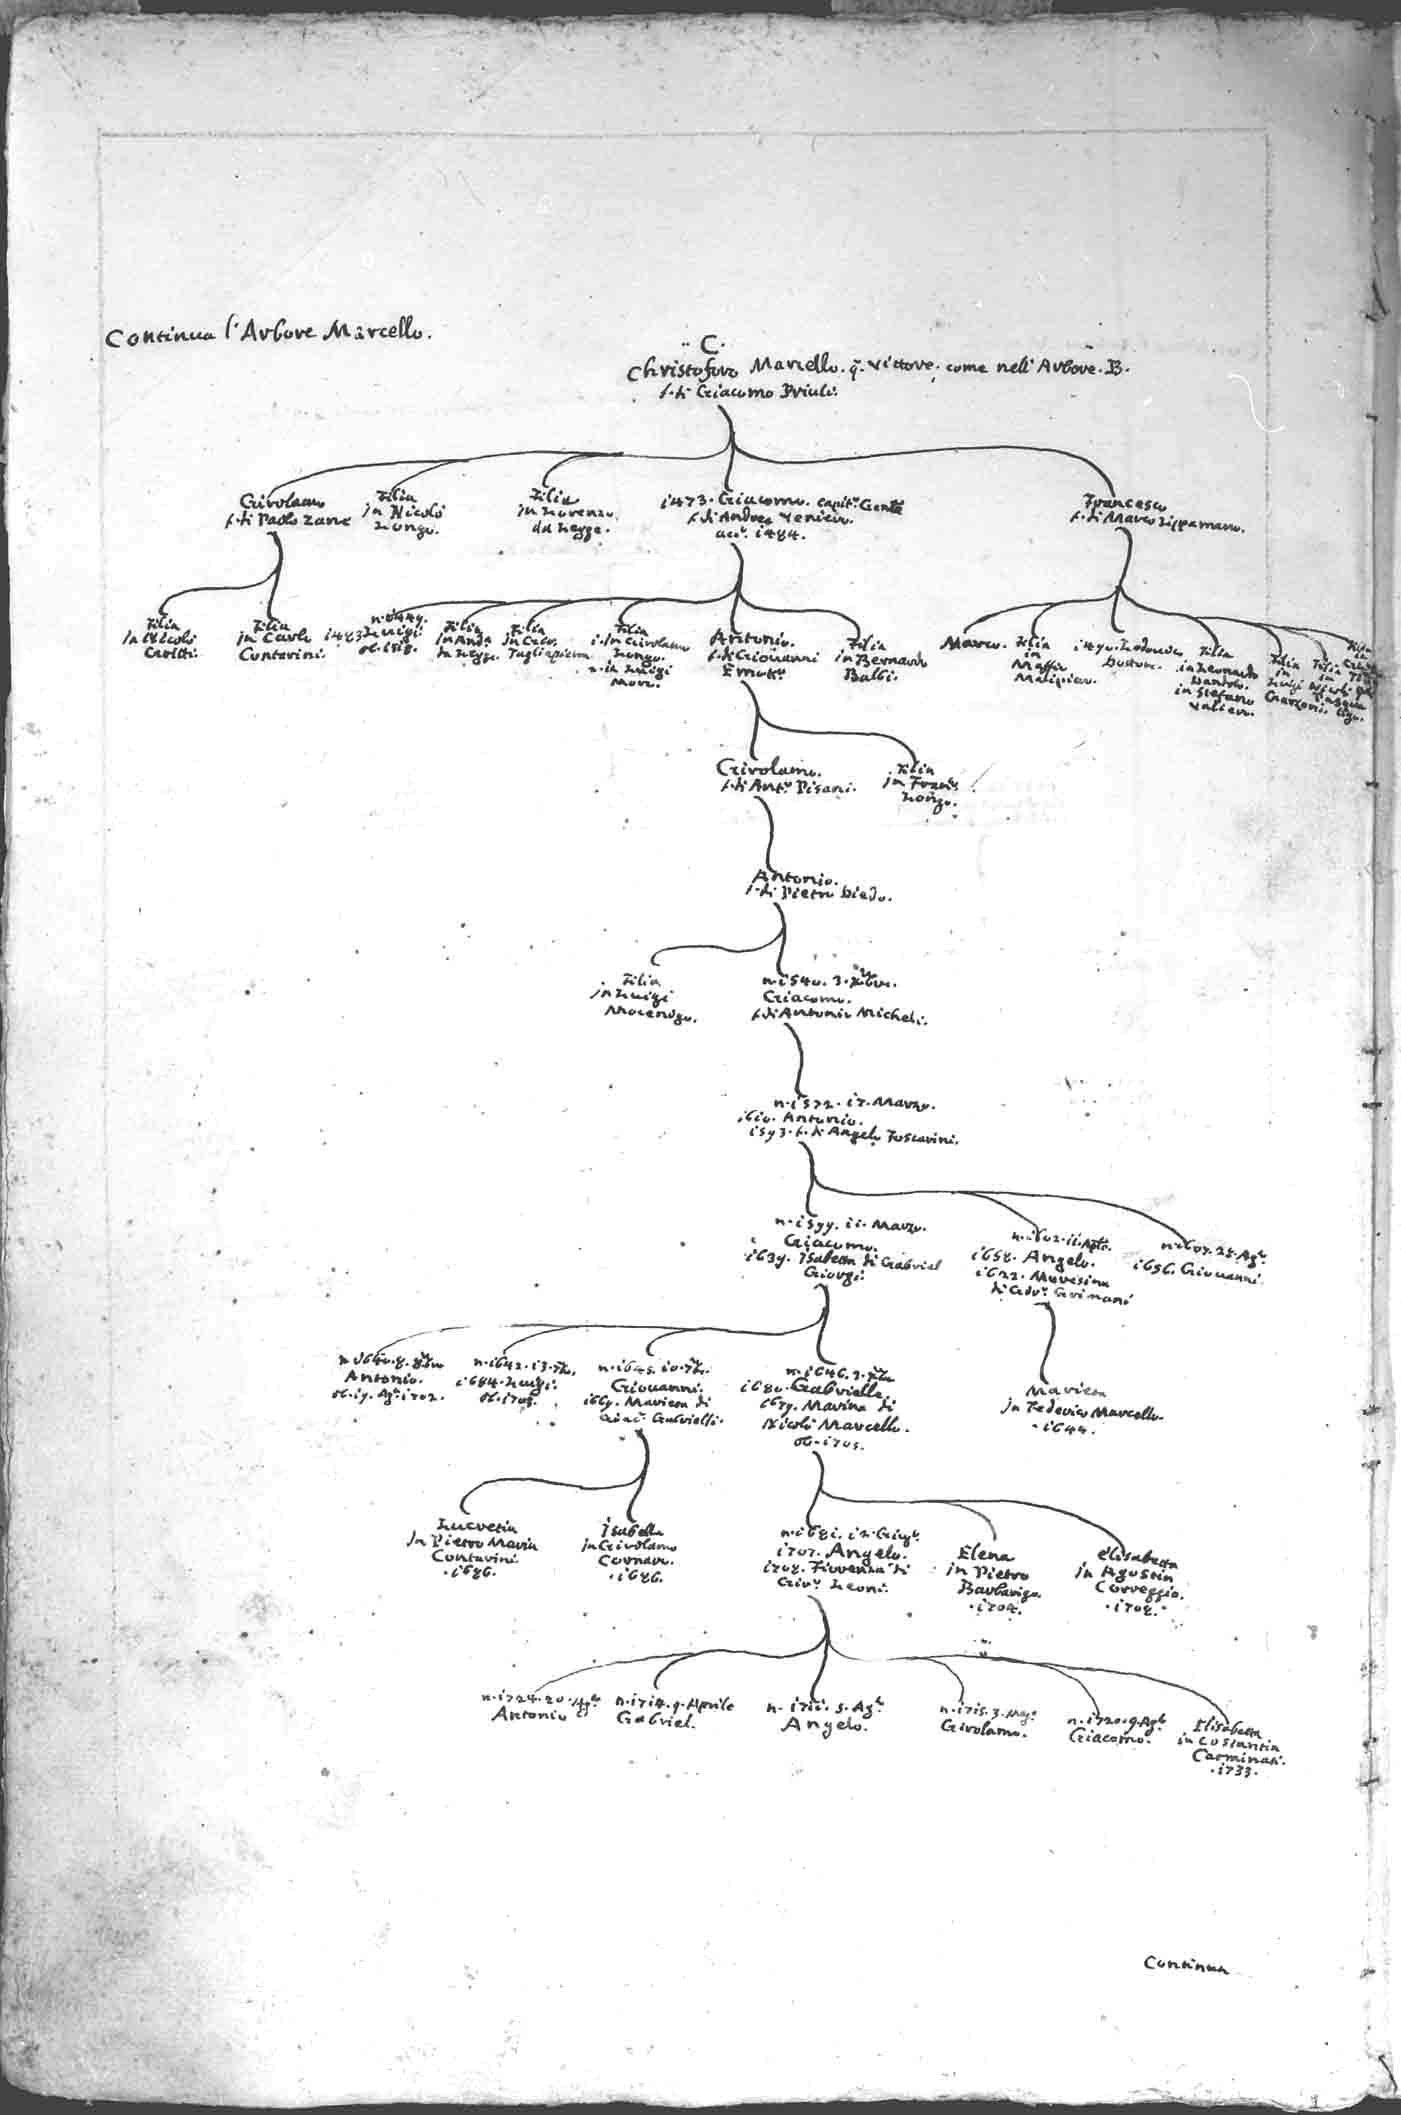 Continua l'Arbore Marcello.
C.
Christoforo Marcello. q. Vittore. come nell' Arbore. B.
f. di Giacomo Priuli.
Girolamo
f. di Paolo Zane
Filia
in Nicolò
Longo.
Filia
in Lorenzo
da Lezze.
1473. Giacomo. Capit. Gen
f. di Andrea Venier.
1484.
Francesco
f. di Marco Lippamano.
Filia
in Nicolò
Filia
in Carlo
Contarini.
Luigi
ob. 1518.
Filia
in And.
da Lezze.
Filia
in
Tagliapietra
Filia
1. in Girolamo
Longo.
2. in Luigi
Moro.
Antonio.
f. di Giovanni
Emo
Filia
in Bernardo
Balbi.
Marco.
Filia
in
Maffio
Malipiero.
1490. Lodovico
Dottore.
Filia
in Leonardo
Dandolo.
in Stefano
Valier.
Filia
in
Luigi
Garzoni.
Filia
in
Nicolò
Filia
Girolamo.
f. di Ant. Pisani.
Filia
in Franc.
Longo.
Antonio.
f. di Pietro Diedo.
Filia
in Luigi
Mocenigo.
n. 1540. 3.
Giacomo.
f. di Antonio Micheli.
n. 1572. 17. Marzo.
1610. Antonio.
1593. f. di Angelo Foscarini.
n. 1599. 11. Marzo.
Giacomo.
1639. Isabetta di Gabriel
Giorgi.
n. 1602. 11.
1658. Angelo.
1622. Moresina
di Grimani
n. 1607. 28. Ag.
1656. Giovanni.
n. 1640. 8. 8bre
Antonio.
ob. 19. Ag. 1702.
n. 1642. 13.
1684. Luigi.
ob. 1703.
n. 1645. 10.
Giovanni.
1669. Marietta di
Gabrielli.
n. 1646. 3.
1680. Gabrielle.
1679. Marina di
Nicolò Marcello.
ob. 1705.
Marietta
in Federico Marcello.
. 1644.
Lucretia
in Pietro Maria
Contarini.
. 1686.
Isabella
in Girolamo
Cornaro.
. 1686.
n. 1681. 12. Giug.
1707. Angelo.
1708. Fiorenza di
Giov. Leoni.
Elena
in Pietro
Barbarigo.
. 1704.
Elisabetta
in Agostin
Correggio.
. 1708.
n. 1724. 20. Ag.
Antonio
n. 1714. 9. Aprile
Gabriel.
n. 1711. 5. Ag.
Angelo.
n. 1715. 3.
Girolamo.
n. 1720. 9. Ag.
Giacomo.
Elisabetta
in Costantin
Carminati.
. 1733.
Continua